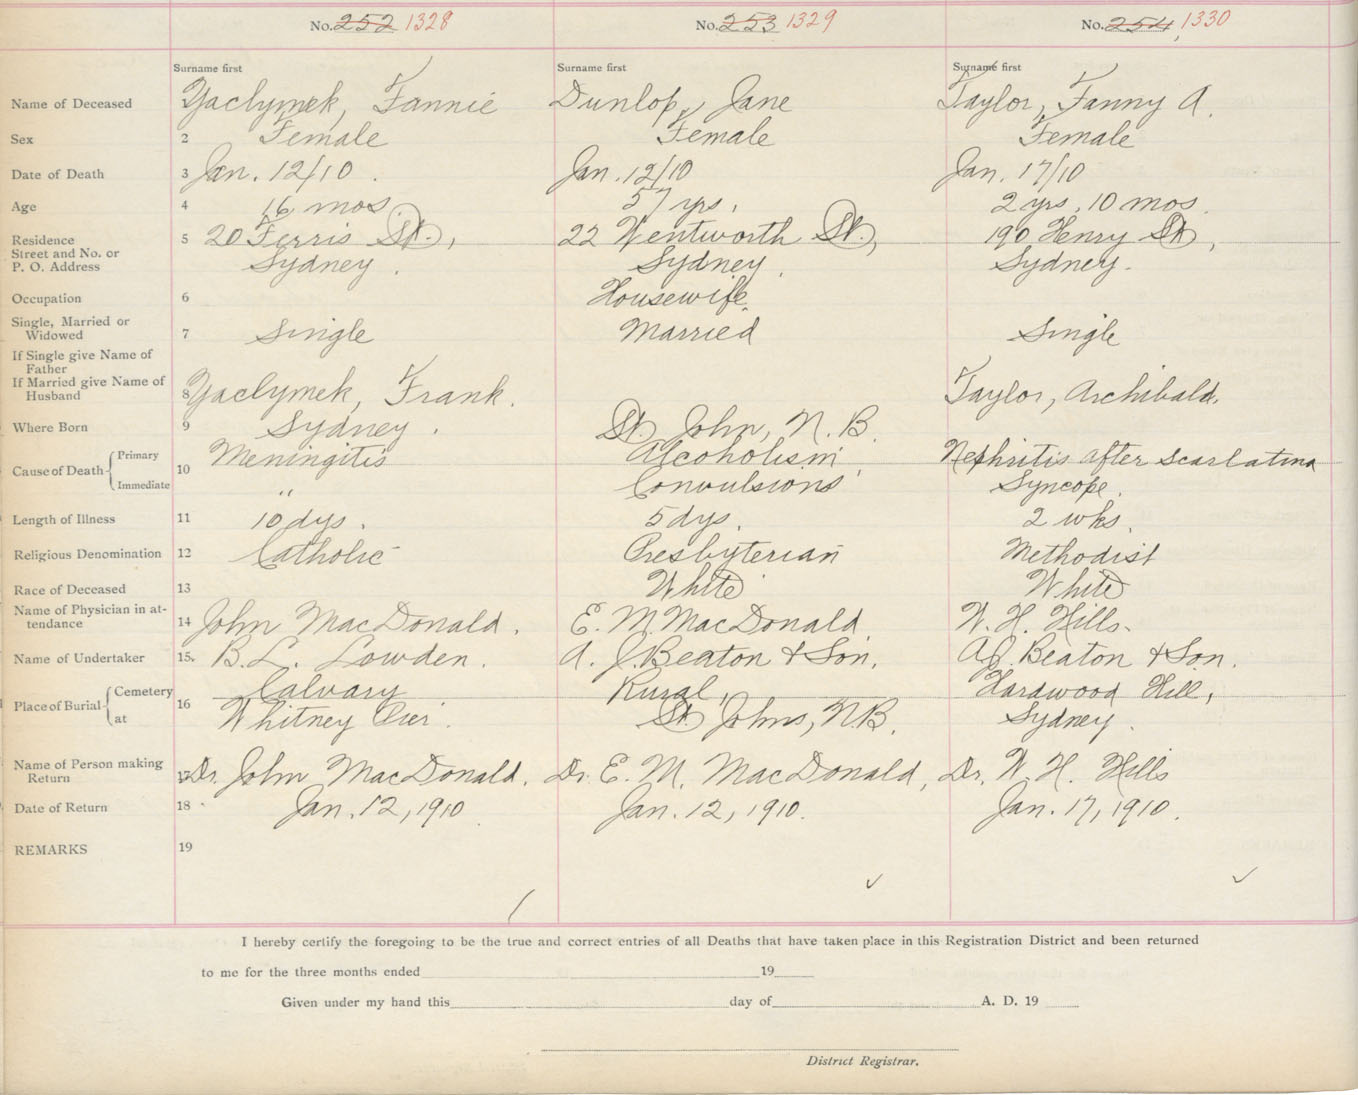 No. 252 1328 No. 253 1329 No. 254, 1330
Surname first Surname first Surname first
Name of Deceased Yaclymek, Fannie Dunlop, Jane Taylor, Fanny A.
Sex 2 Female Female Female
Date of Death 3 Jan. 12/10. Jan. 12/10 Jan. 17/10
Age 4 16 mos 57 yrs. 2 yrs, 10 mos.
Residence 5 20 Ferris St., 22 Wentworth St., 190 Henry St,
Street and No. or
P. O. Address Sydney. Sydney. Sydney.
Occupation 6 Housewife.
Single, Married or
Widowed 7 Single Married Single
If Single give Name of
Father
If Married give Name of
Husband 8 Yaclymek, Frank. Taylor, Archibald.
Where Born 9 Sydney. St. John, N. B.
Cause of Death Primary Meningitis Alcoholism, Nephritis after scarlatina
10
Immediate " Convulsions Syncope.
Length of Illness 11 10 dys. 5 dys. 2 wks.
Religious Denomination 12 Catholic Presbyterian Methodist
Race of Deceased 13 White White
Name of Physician in at-
tendance 14 John MacDonald. E. M. MacDonald. W. H. Hills.
Name of Undertaker 15 B. L. Lowden. A. J. Beaton & Son. A. J. Beaton & Son.
Place of Burial Cemetery Calvary Rural, Hardwood Hill,
16
at Whitney Pier. St Johns, N.B. Sydney.
Name of Person making
Return 17 Dr. John MacDonald. Dr. E. M. MacDonald, Dr. W. H. Hills
Date of Return 18 Jan. 12, 1910 Jan. 12, 1910. Jan. 17, 1910.
REMARKS 19
I hereby certify the foregoing to be the true and correct entries of all Deaths that have taken place in this Registration District and been returned
to me for the three months ended 19
Given under my hand this day of A. D. 19
District Registrar.